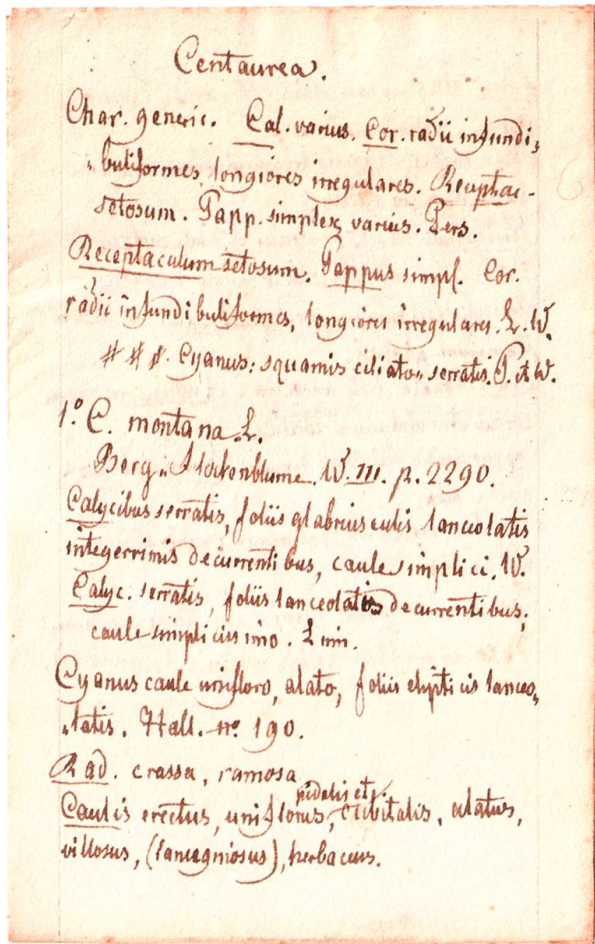 Centaurea.
Char. generic. Cal. varius. Cor. radii infundi,
„buliformes, longiores irregulares. Receptac-
setosum. Papp. simplex, varius. Pers.
Receptaculum setosum. Pappus simpl. Cor.
radii infundibuliformes, longiores irregulares. L. W.
# # #. Cyanus: squamis ciliato-serratis. P. et W.
1.° C. montana. L.
Berg-Flockenblume. W. III. p. 2290.
Calycibus serratis, foliis glabriusculis lanceolatis
integerrimis decurrentibus, caule simplici. W.
Calyc. serratis, foliis lanceolatis decurrentibus,
caule simplicissimo. Linn.
Cyanus caule unifloro, alato, foliis elipticis lanceo„
„latis. Hall. no. 190.
Rad. crassa, ramosa
pidalis et
Caulis erectus, uniflorus, cubitalis, alatus,
villosus, (lanuginosus), herbaceus.